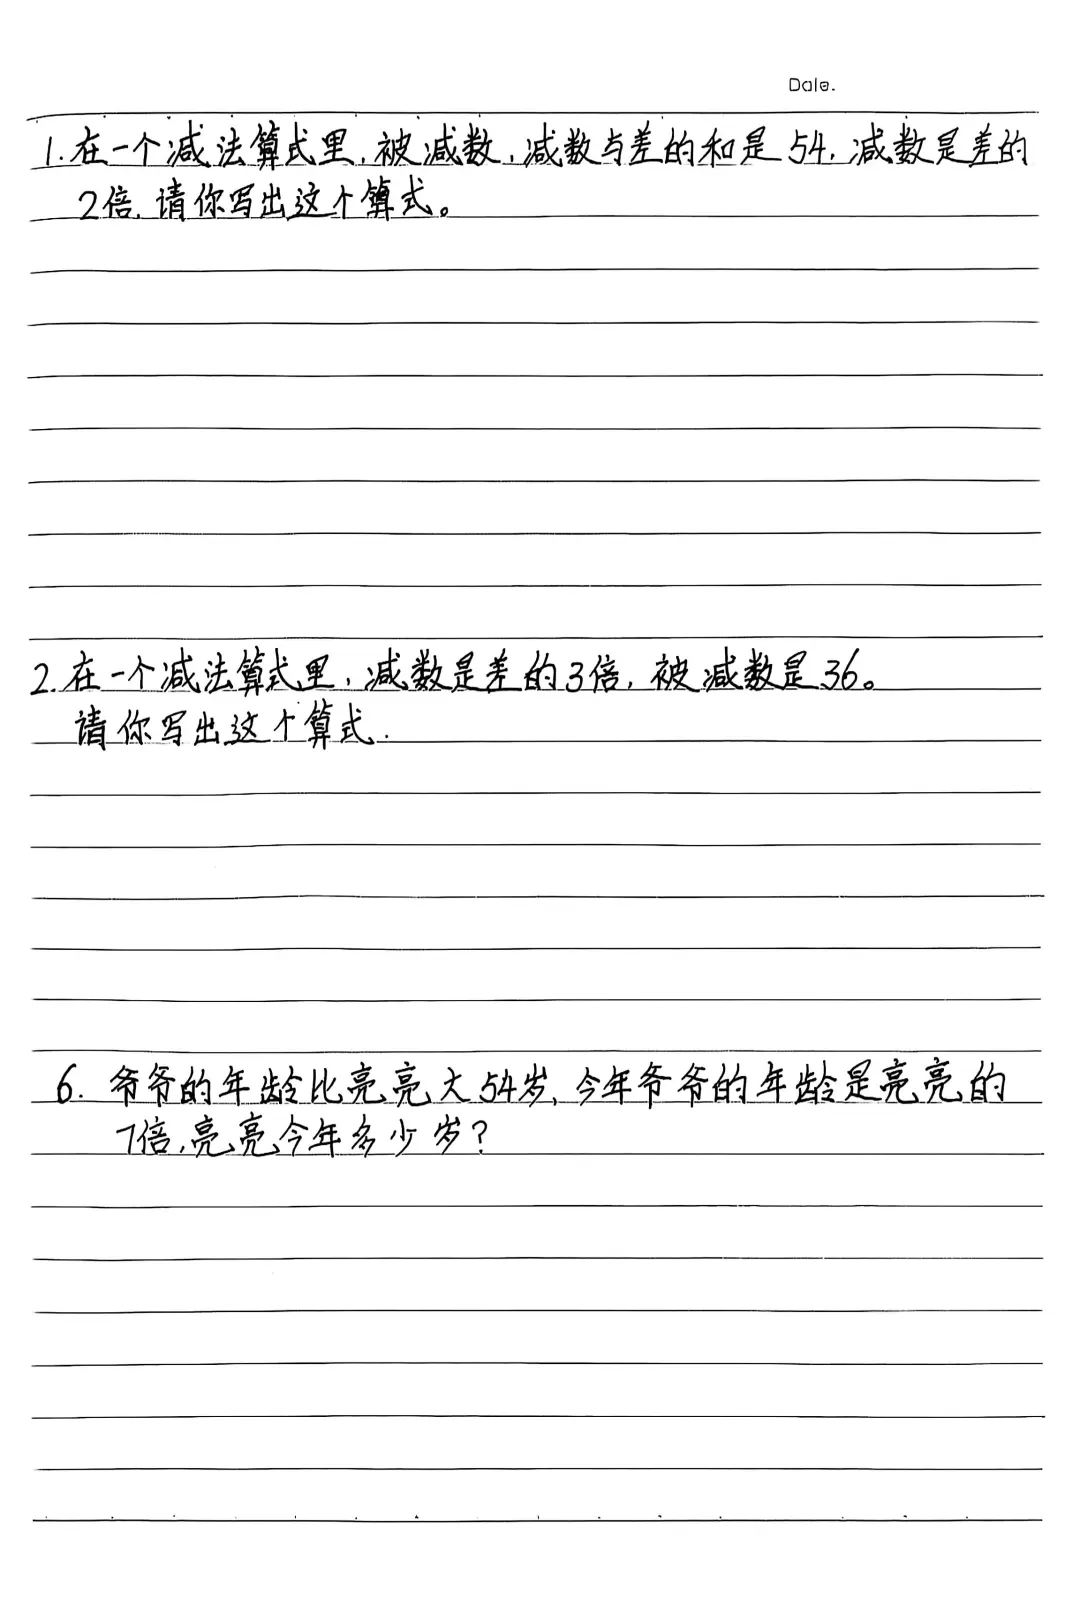 Date.
1.在一个减法算式里,被减数,减数与差的和是54,减数是差的
2倍,请你写出这个算式。
2.在一个减法算式里,减数是差的3倍,被减数是36。
请你写出这个算式.
6. 爷爷的年龄比亮亮大54岁,今年爷爷的年龄是亮亮的
7倍,亮亮今年多少岁?